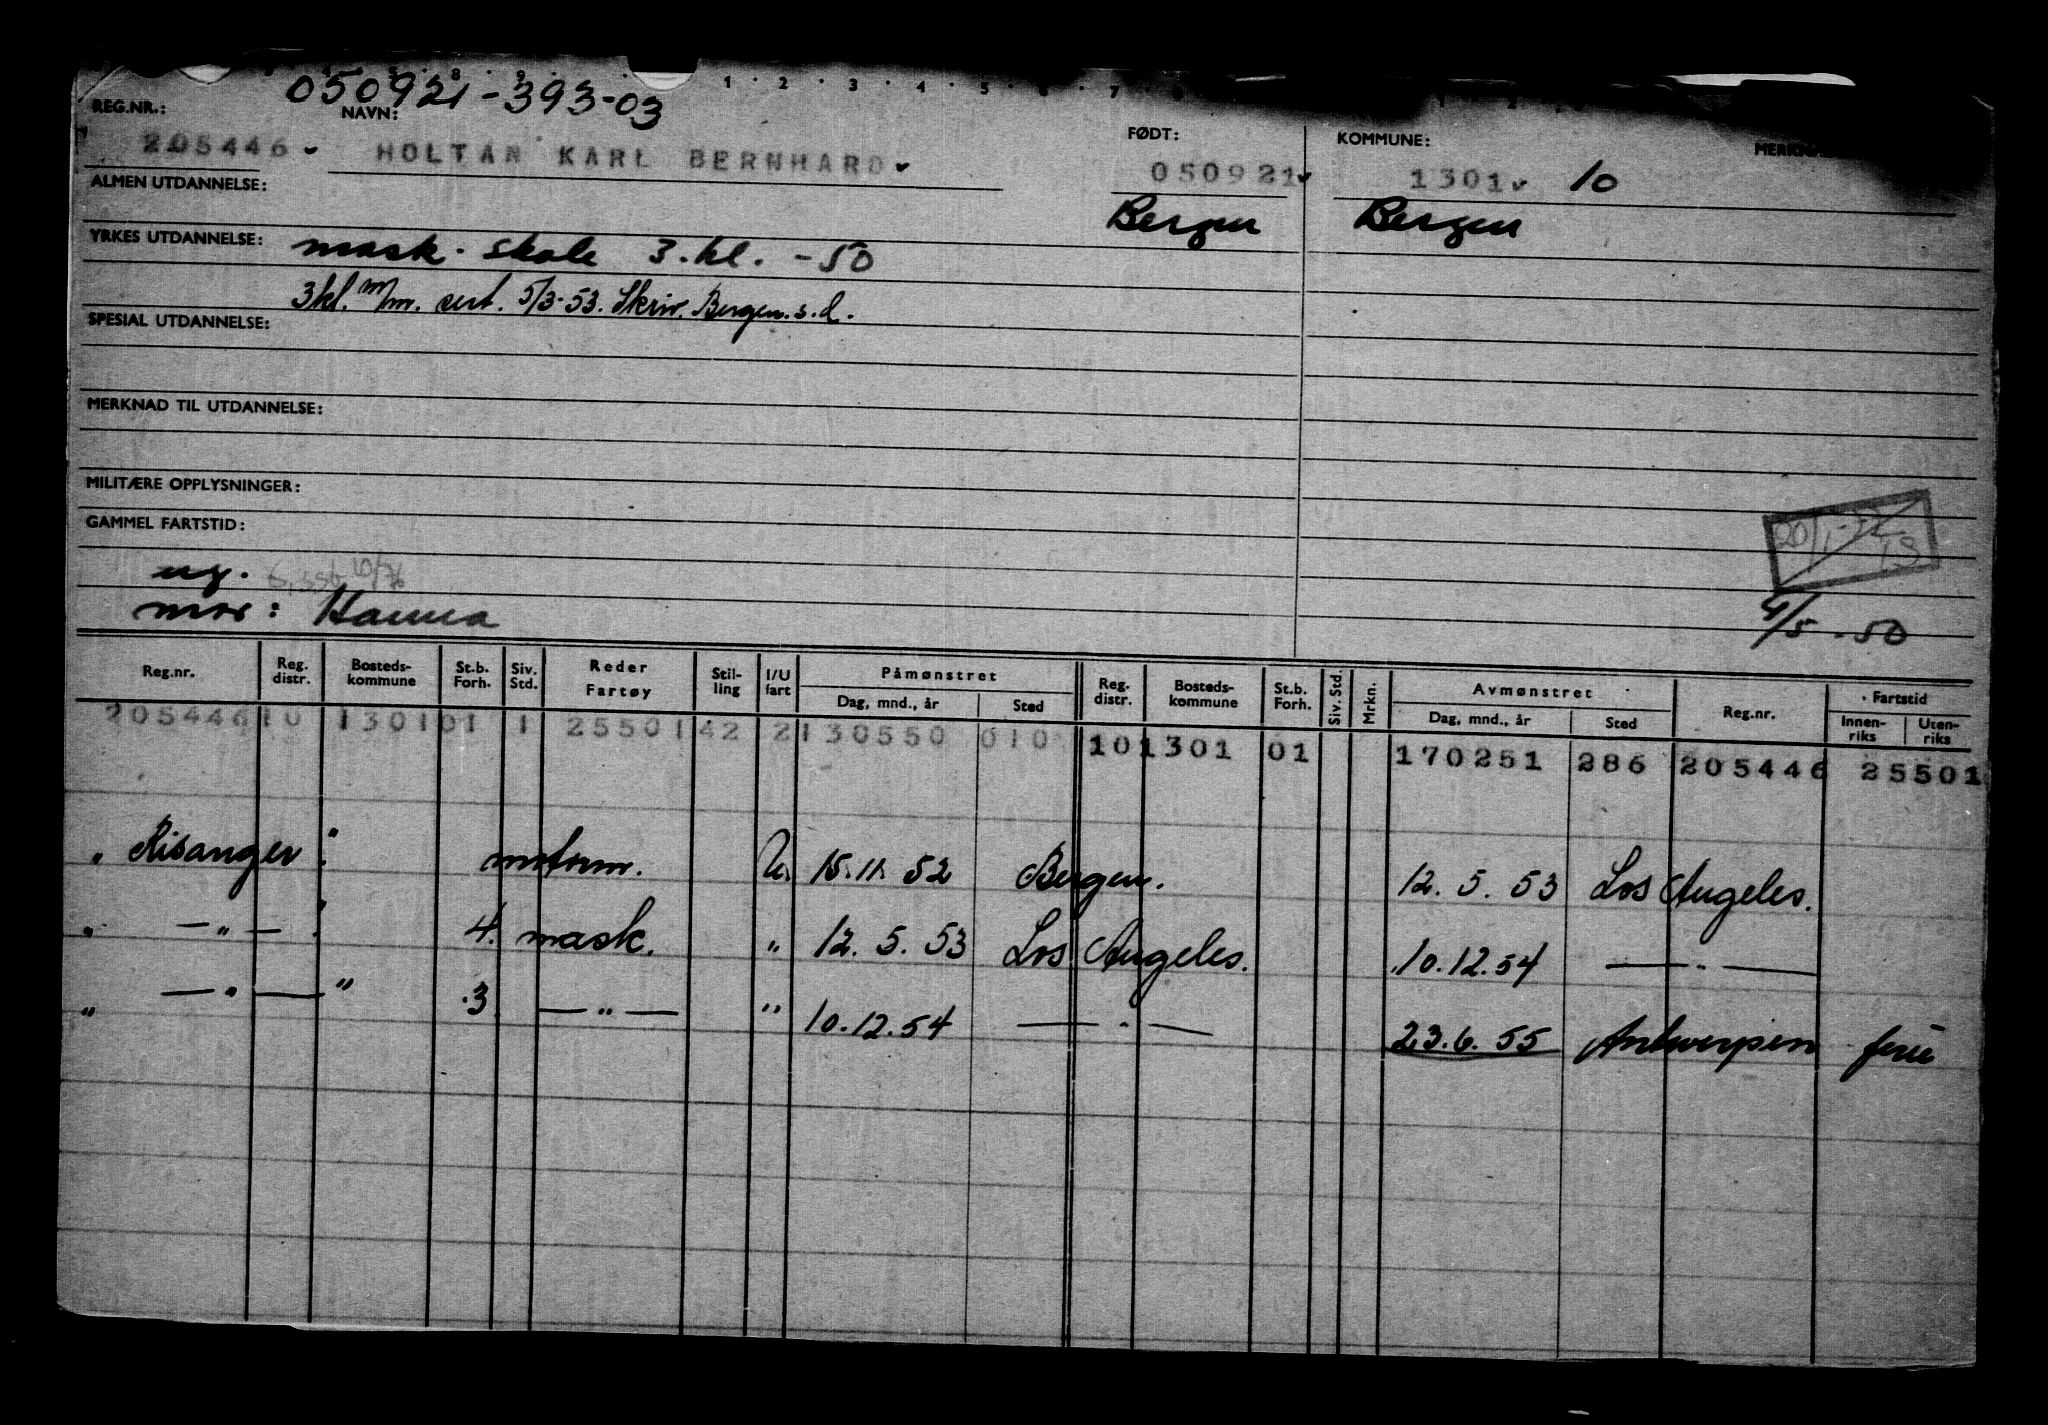 050921-393-03
REG.NR.: NAVN: FØDT: KOMMUNE:
205446 HOLTAN KARL BERNHARD 050921 1301 10
Bergen Bergen
ALMEN UTDANNELSE:
YRKES UTDANNELSE: mask. skole 3. kl. -50
3kl. m/m. cert. 5/3-53. Skriv. Bergen s.d.
SPESIAL UTDANNELSE:
MERKNAD TIL UTDANNELSE:
MILITÆRE OPPLYSNINGER:
GAMMEL FARTSTID:
ug.
mor: Hanna
4/5 - 50
Reg.nr. Reg. distr. Bosteds-kommune St.b. Forh. Siv. Std. Reder Fartøy Stil-ling I/U fart Påmønstret Dag, mnd., år Sted Reg. distr. Bosteds-kommune St.b. Forh. Siv. Std. Mrkn. Avmønstret Dag, mnd., år Sted Reg.nr. Fartstid Innen-riks Uten-riks
205446 10 1301 01 1 25501 42 2 130550 010 10 1301 01 170251 286 205446 25501
" Risanger " motorm. U. 15.11.52 Bergen. 12.5.53 Los Angeles.
" — " — " 4. mask. " 12.5.53 Los Angeles. 10.12.54 — " —
" — " — " 3 — " — " 10.12.54 — " — 23.6.55 Antwerpen ferie